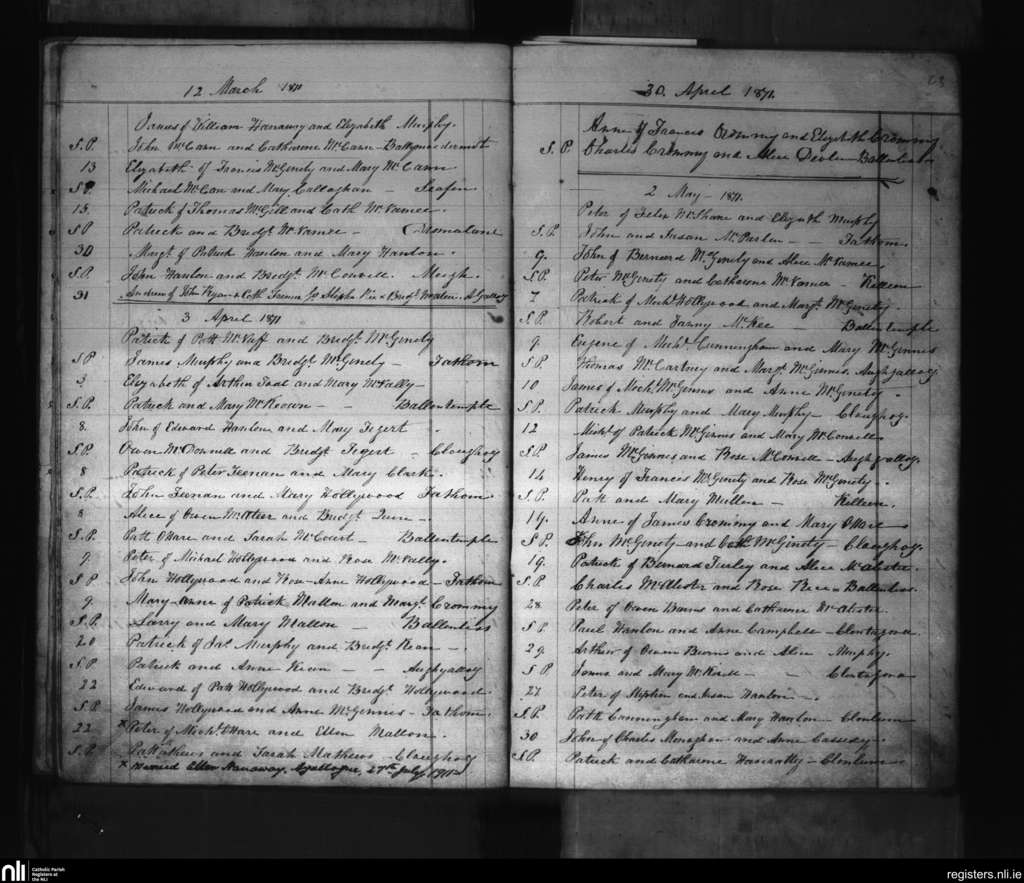 12 March 1871
James of William Hanaway and Elizabeth Murphy.
S.P. John McCann and Catharine McCann - Ballymacdermott
13 Elizabeth of Francis McGinety and Mary McCann
S.P. Michael McCann and Mary Callaghan -
13. Patrick of Thomas McGill and Cath McNamee -
S.P. Patrick and Bridgt McNamee -
30 Margt of Patrick Hanlon and Mary Hanlon -
S.P. John Hanlon and Bridgt McConvill. Meigh.
31 Andrew of John Ryan & Cath
3 April 1871
Patrick of Patt McNaff and Bridgt McGinety
S.P. James Murphy and Bridgt McGinety - Fathom
3 Elizabeth of Arthur Toal and Mary McNally -
S.P. Patrick and Mary McKeown - - Ballentemple
8. John of Edward Hanlon and Mary Tegert -
S.P. Owen McDonnell and Bridgt Tegert - Cloughog
8 Patrick of Peter Feenan and Mary Clark -
S.P. John Feenan and Mary Hollywood Fathom
8 Alice of Owen McAteer and Bridgt Quin -
S.P. Patt OHare and Sarah McCourt - Ballentemple
9. Peter of Michael Hollywood and Rose McNally -
S.P. John Hollywood and Rose-Anne Hollywood - Fathom
9. Mary-anne of Patrick Mallon and Margt Crommy
S.P. Larry and Mary Mallon - Ballinless
20 Patrick of Jas Murphy and Bridgt Kean -
S.P. Patrick and Anne Kean - - Aughyallog
22 Edward of Patt Hollywood and Bridgt Hollywood
S.P. James Hollywood and Anne McGennis - Fathom.
22 x Peter of Michl OHare and Ellen Mallon.
S.P. Patt Mathews and Sarah Mathews Cloughog
x Married Ellen Hanaway, 27th July 1902
30. April 1871.
Anne of Francis Crommy and Elizabeth Crommy
S.P. Charles Crommy and Alice Devlin Ballinless
2 May - 1871.
Peter of Felix McShane and Elizabeth Murphy
S.P. John and Susan McParlan - - Fathom
9. John of Bernard McGinety and Alice McNamee.
S.P. Peter McGinety and Catharine McNamee - Killeen
7. Patrick of Michl Hollywood and Margt McGinety.
S.P. Robert and Fanny McKee Ballentemple
9 Eugene of Michl Cunningham and Mary McGinnis
S.P. Thomas McCartney and Margt McGinnis Aughyalloy
10 James of Michl McGinnis and Anne McGinety -
S.P. Patrick Murphy and Mary Murphy - Cloughog.
12 Michl of Patrick McGinnis and Mary McConvill
S.P. James McGennis and Rose McConvill - Aughyalloy.
14 Henry of Francis McGinety and Rose McGinety -
S.P. Patt and Mary Mullen - Killeen.
19. Anne of James Crommy and Mary OHare
S.P. John McGinety and Cath McGinety - Cloughog
19. Patrick of Bernard Turley and Alice McAlister.
S.P. Charles McAlister and Rose Rice - Ballinless.
28 Peter of Owen Burns and Catharine McAlister.
S.P. Paul Hanlon and Anne Campbell - Clontygora
29. Arthur of Owen Burns and Alice Murphy.
S.P. and Mary - Clontygora
27. Peter of Stephen and Susan Hanlon -
S.P. Patk Cunningham and Mary Hanlon - Clonlum
30 John of Charles Monaghan and Anne Cassedy -
S.P. Patrick and Catharine -
nli
Catholic Parish
Registers at
the NLI
registers.nli.ie